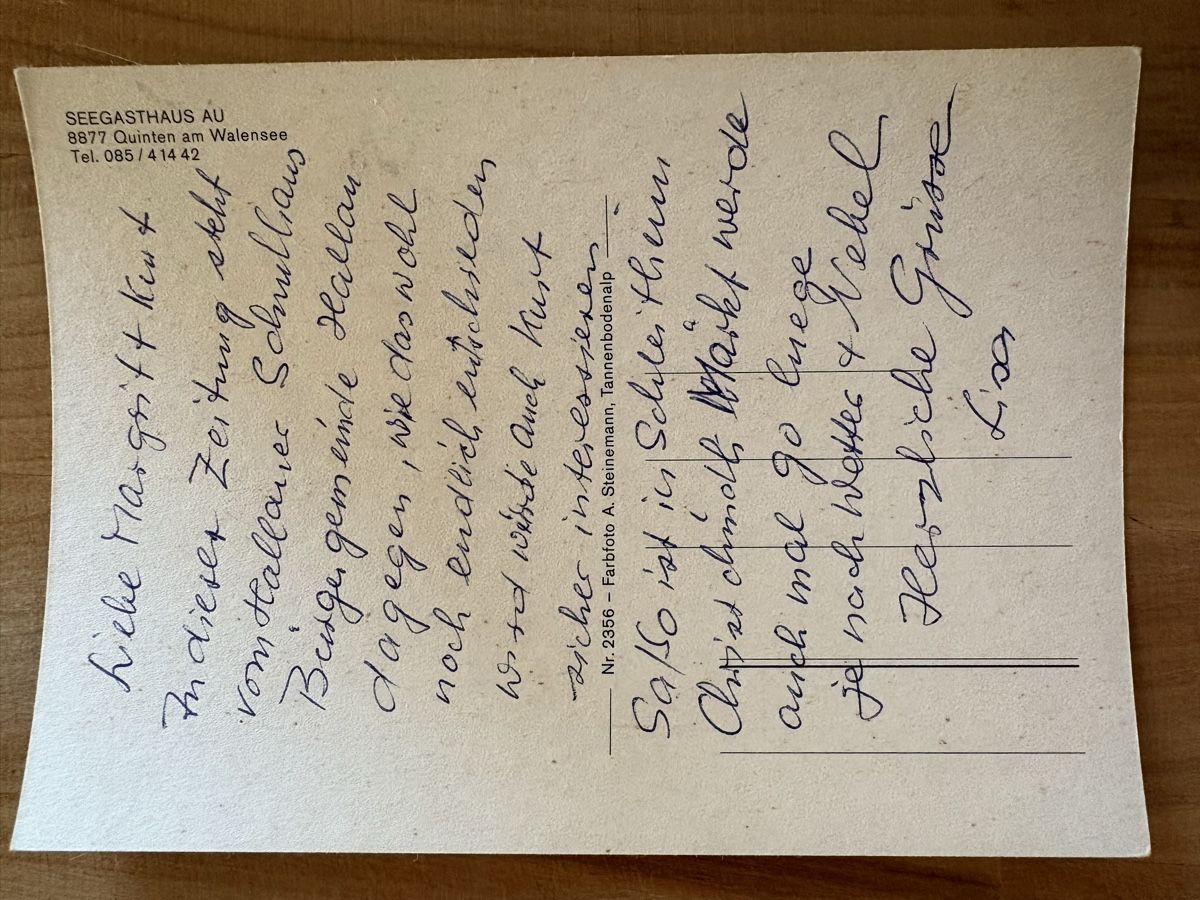 SEEGASTHAUS AU
8877 Quinten am Walensee
Tel. 085 / 4 14 42
Liebe Margrit + Kurt
In dieser Zeitung steht
vom Hallauer Schulhaus
Bürgergemeinde Hallau
dagegen, wie das wohl
noch endlich entschieden
wird würde auch Kurt
sicher interessieren
Nr. 2356 – Farbfoto A. Steinemann, Tannenbodenalp
Sa/So ist in Schleitheim
Christchindli Märkt werde
auch mal go luege
je nach Wetter + Nebel
Herzliche Grüsse
Lisa